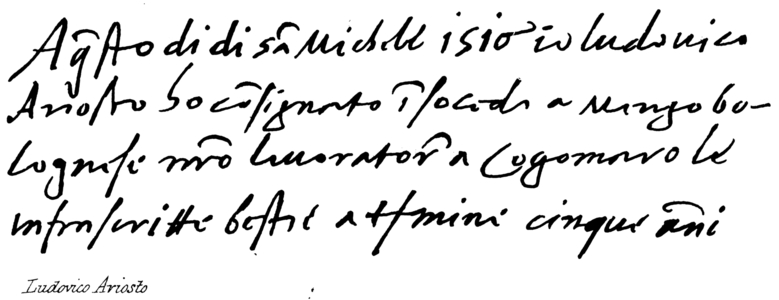 A q̄sto di di sā Michele 1510 io ludovico
Ariosto ho cōsignato ī soceda a Mengo bo-
lognese nr̄o lavorator̄ a Cogomaro le
infrascritte bestie a t̄mine cinque āni
Ludovico Ariosto